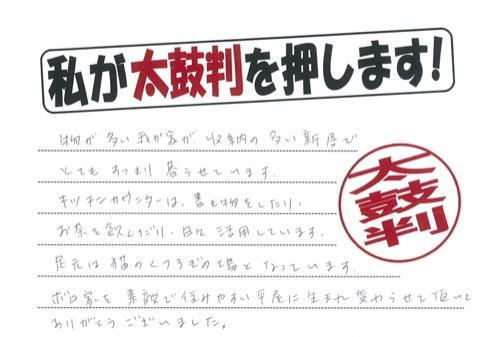 私が太鼓判を押します!
物が多い我が家が、収納の多い新居で
とてもすっきり暮らせています。
キッチンカウンターは、書き物をしたり、
お茶を飲んだり、日々活用しています。
足元は猫のくつろぎの場となっています。
ボロ家を素敵で住みやすい平屋に生まれ変わらせて頂いて
ありがとうございました。
太鼓判